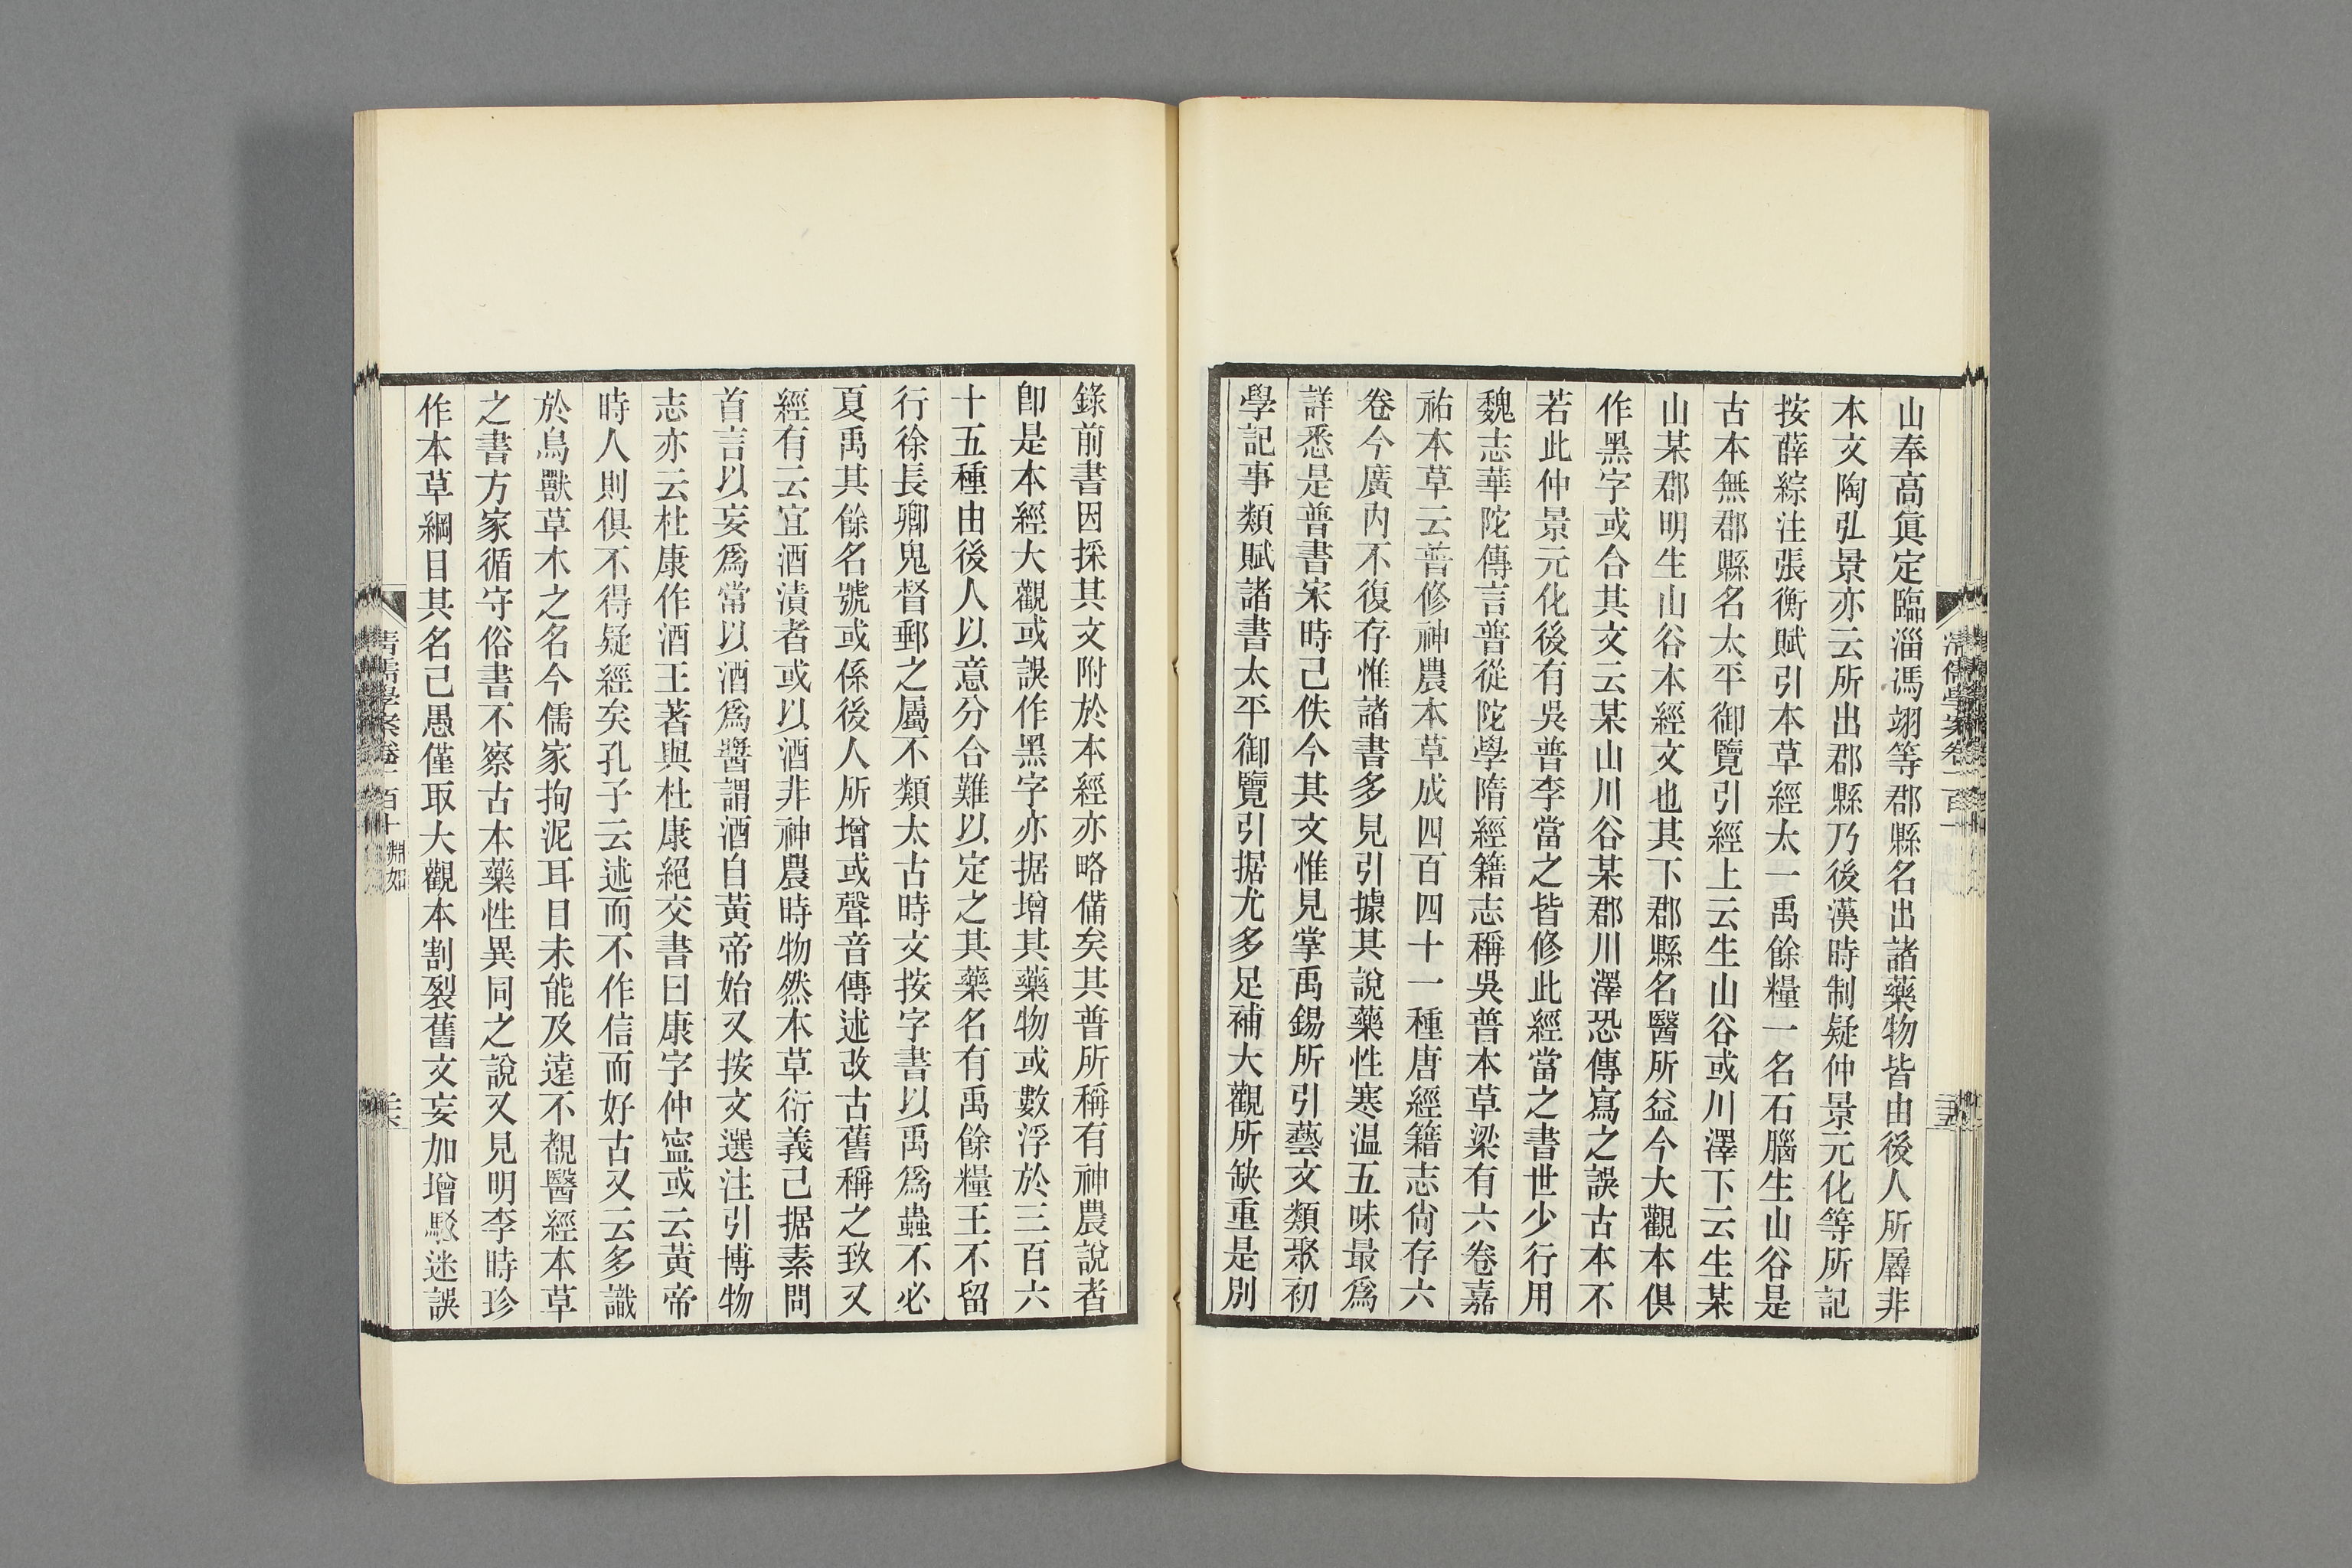 山奉高眞定臨淄馮翊等郡縣名出諸藥物皆由後人所羼非
本文陶弘景亦云所出郡縣乃後漢時制疑仲景元化等所記
按薛綜注張衡賦引本草經太一禹餘糧一名石腦生山谷是
古本無郡縣名太平御覽引經上云生山谷或川澤下云生某
山某郡明生山谷本經文也其下郡縣名醫所益今大觀本俱
作黑字或合其文云某山川谷某郡川澤恐傳寫之誤古本不
若此仲景元化後有吳普李當之皆修此經當之書世少行用
魏志華陀傳言普從陀學隋經籍志稱吳普本草梁有六卷嘉
祐本草云普修神農本草成四百四十一種唐經籍志尙存六
卷今廣內不復存惟諸書多見引據其說藥性寒温五味最爲
詳悉是普書宋時己佚今其文惟見掌禹錫所引藝文類聚初
學記事類賦諸書太平御覽引据尤多足補大觀所缺重是別
錄前書因採其文附於本經亦略備矣其普所稱有神農說者
卽是本經大觀或誤作黑字亦据增其藥物或數浮於三百六
十五種由後人以意分合難以定之其藥名有禹餘糧王不留
行徐長卿鬼督郵之屬不類太古時文按字書以禹爲蟲不必
夏禹其餘名號或係後人所增或聲音傳述改古舊稱之致又
經有云宜酒漬者或以酒非神農時物然本草衍義己据素問
首言以妄爲常以酒爲醬謂酒自黃帝始又按文選注引博物
志亦云杜康作酒王著與杜康絕交書曰康字仲寍或云黃帝
時人則俱不得疑經矣孔子云述而不作信而好古又云多識
於鳥獸草木之名今儒家拘泥耳目未能及遠不覩醫經本草
之書方家循守俗書不察古本藥性異同之說又見明李時珍
作本草綱目其名己愚僅取大觀本割裂舊文妄加增駁迷誤
清儒學案卷一百十